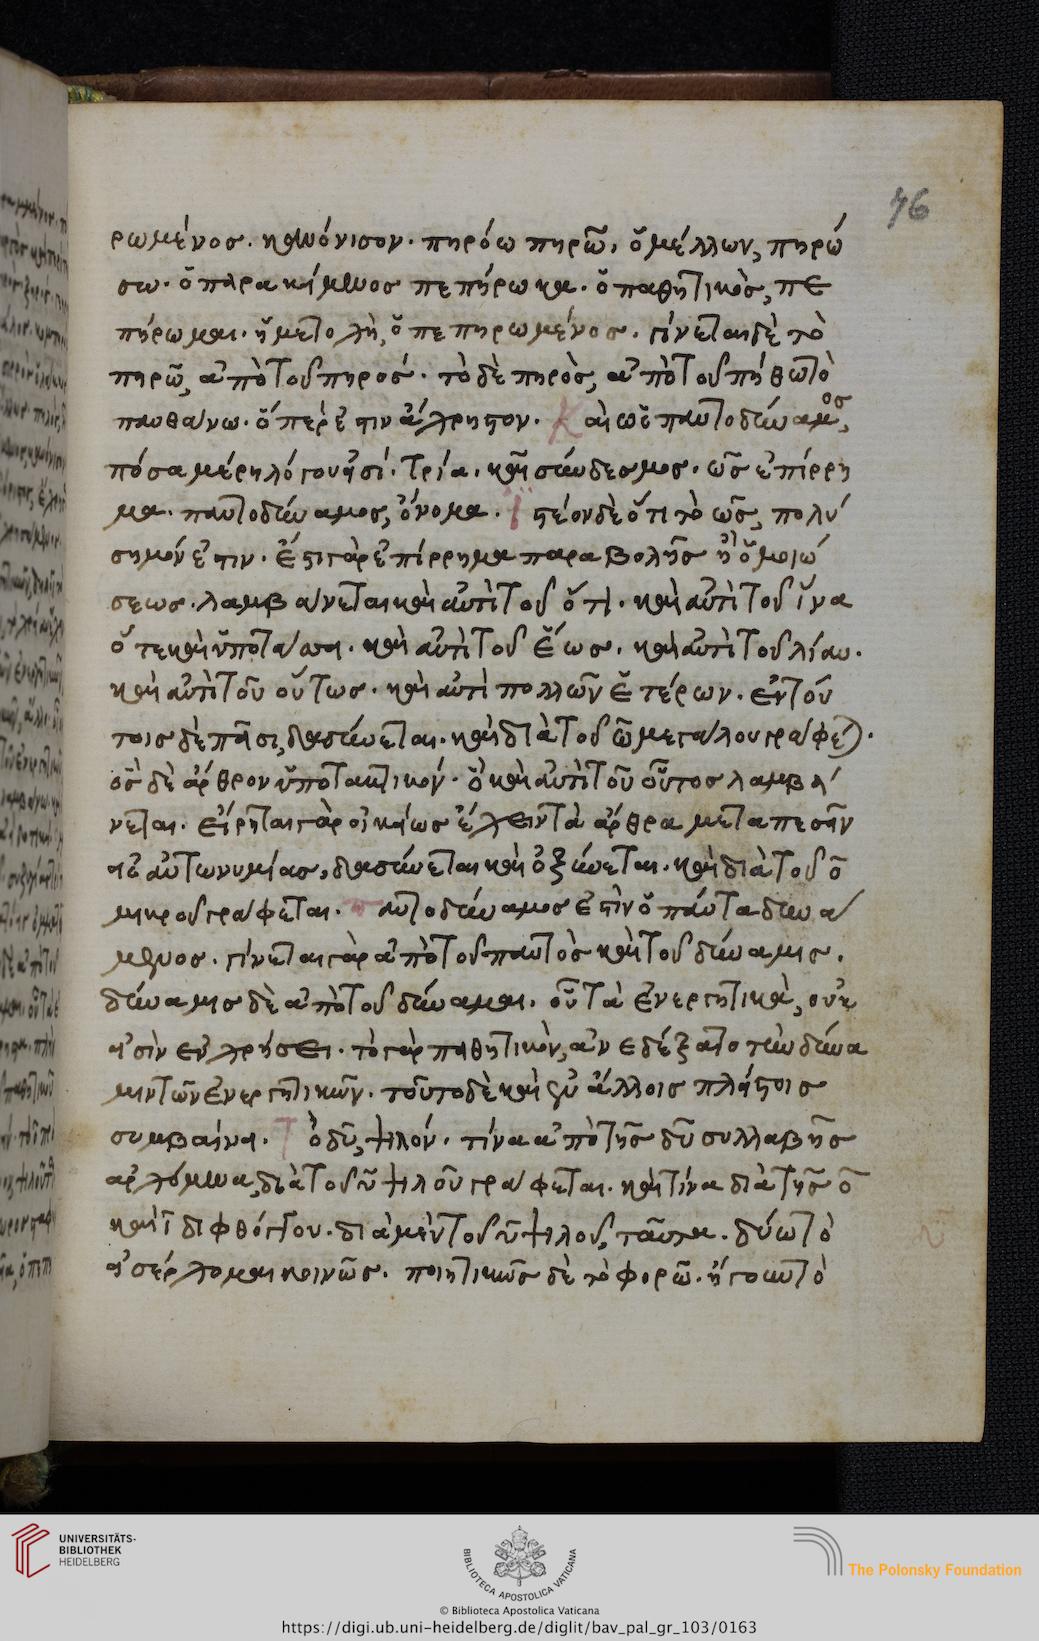 76
ρωμένος. κανόνισον. πηρόω πηρῶ, ὁ μέλλων, πηρώ
σω. ὁ παρακείμενος πεπήρωκα. ὁ παθητικὸς, πε
πήρωμαι. ἡ μετοχὴ, ὁ πεπηρωμένος. γίνεται δὲ τὸ
πηρῶ, ἀπὸ τοῦ πηρός. τὸ δὲ πηρὸς, ἀπὸ τοῦ πήθω τὸ
πανθάνω. ὅπέρ ἐστιν ἄχρηστον. Καὶ ὡς παντοδύναμος,
πόσα μέρη λόγου εἰσί. τρία. καὶ σύνδεσμος. ὡς ἐπίρρη
μα. παντοδύναμος, ὄνομα. ἰστέον δὲ ὅτι τὸ ὡς, πολύ
σημόν ἐστιν. ἔστι γὰρ ἐπίρρημα παραβολῆς ἢ ὁμοιώ
σεως. λαμβάνεται καὶ ἀντὶ τοῦ ὅτι. καὶ ἀντὶ τοῦ ἵνα
ὅτε καὶ ὑποτάσσει. καὶ ἀντὶ τοῦ ἕως. καὶ ἀντὶ τοῦ λίαν.
καὶ ἀντὶ τοῦ οὕτως. καὶ ἀντὶ πολλῶν ἑτέρων. ἐν τού
τοις δὲ πᾶσι, δασύνεται. καὶ διὰ τοῦ ω μεγάλου γράφε).
ὃς δὲ ἄρθρον ὑποτακτικόν. ὃ καὶ ἀντὶ τοῦ οὗτος λαμβά
νεται. εἴρηται γὰρ οἰκείως ἔχειν τὰ ἄρθρα μεταπεσεῖν
εἰς ἀντωνυμίας, δασύνεται καὶ ὀξύνεται. καὶ διὰ τοῦ ο
μικροῦ γράφεται. παντοδύναμος ἐστὶν ὁ πάντα δυνά
μενος. γίνεται γὰρ ἀπὸ τοῦ παντὸς καὶ τοῦ δύναμις.
δύναμις δὲ ἀπὸ τοῦ δύναμαι. οὗ τὰ ἐνεργητικὰ, οὐκ
εἰσὶν ἐν χρήσει. τὸ γὰρ παθητικὸν, ἀνεδέξατο τὴν δύνα
μιν τῶν ἐνεργητικῶν. τοῦτο δὲ καὶ ἐν ἄλλοις πλείστοις
συμβαίνει. Τὸ δῦ, ψιλόν. τίνα ἀπὸ τῆς δῦ συλλαβῆς
ἀρχόμενα, διὰ τοῦ υ ψιλοῦ γράφεται. καὶ τίνα διὰ τῆς ο
καὶ ι διφθόγγου. διὰ μὲν τοῦ υ ψιλοῦ, ταῦτα. δύω τὸ
εἰσέρχομαι κοινῶς. ποιητικῶς δὲ τὸ φορῶ. ἤγουν τὸ
UNIVERSITÄTS-
BIBLIOTHEK
HEIDELBERG
BIBLIOTECA APOSTOLICA VATICANA
The Polonsky Foundation
© Biblioteca Apostolica Vaticana
https://digi.ub.uni-heidelberg.de/diglit/bav_pal_gr_103/0163